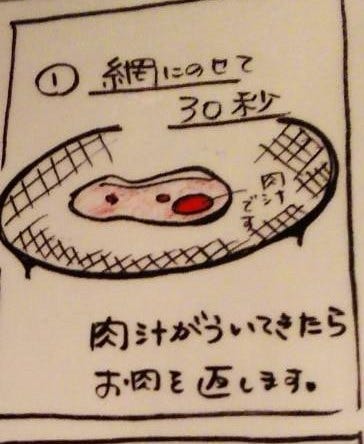 ① 網にのせて
30秒
肉汁
です
肉汁がういてきたら
お肉を返します。